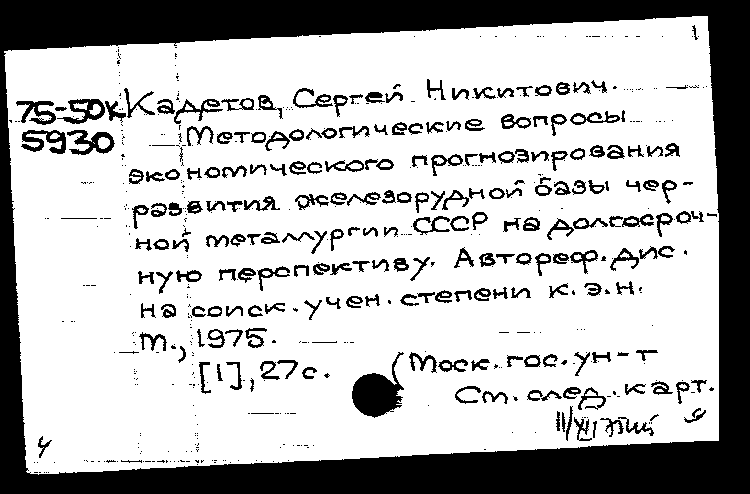 1
75-50к Кадетов, Сергей Никитович.
5930 Методологические вопросы
экономического прогнозирования
развития железорудной базы чер-
ной металлургии СССР на долгосроч-
ную перспективу. Автореф. дис.
на соиск. учен. степени к.э.н.
М., 1975.
[1], 27с. (Моск. гос. ун-т
См. след. карт.